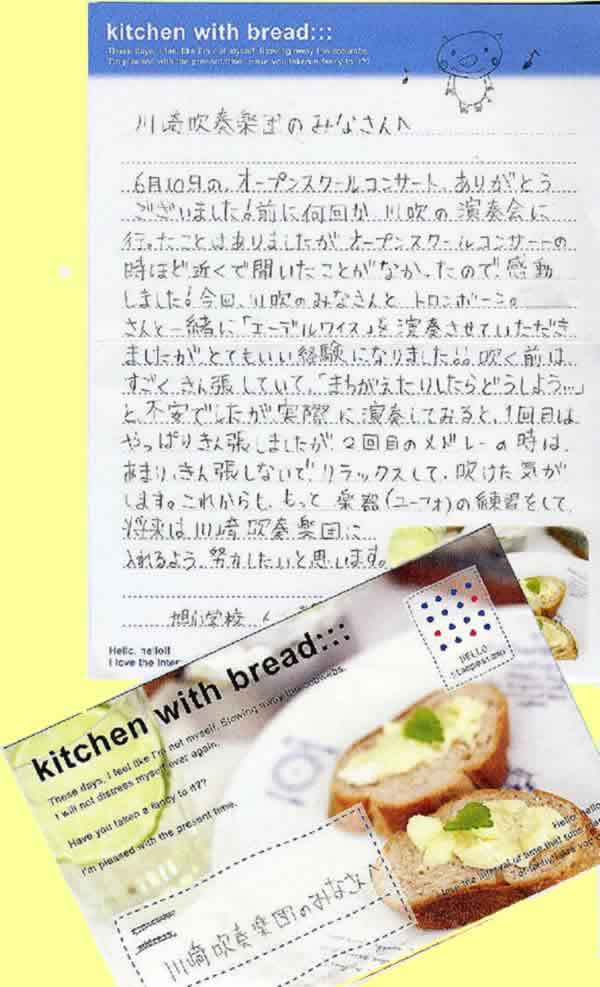 kitchen with bread:::
These days, I feel like I'm not myself. Slowing away the cobwebs.
I'm pleased with the present time. Have you taken a fancy to it??
川崎吹奏楽団のみなさんへ
6月10日の、オープンスクールコンサート、ありがとう
ございました!前に何回か川吹の演奏会に
行ったことはありましたが オープンスクールコンサートの
時ほど近くで聞いたことがなかったので、感動
しました!今回、川吹のみなさんと トロンボーンの
さんと一緒に「エーデルワイス」を演奏させていただき
ましたが、とてもいい経験になりました!!吹く前は
すごく きん張していて、「まちがえたりしたらどうしよう…」
と、不安でしたが、実際に演奏してみると、1回目は
やっぱりきん張しましたが、2回目のメドレーの時は、
あまり、きん張しないで、リラックスして、吹けた気が
します。これからも、もっと 楽器(ユーフォ)の練習をして、
将来は川崎吹奏楽団に
入れるよう、努力したいと思います。
旭小学校
Hello, hello!!
I love the inter
kitchen with bread:::
These days, I feel like I'm not myself. Slowing away the cobwebs.
I will not distress myself over again.
Have you taken a fancy to it??
I'm pleased with the present time.
HELLO
川崎吹奏楽団のみなさんへ